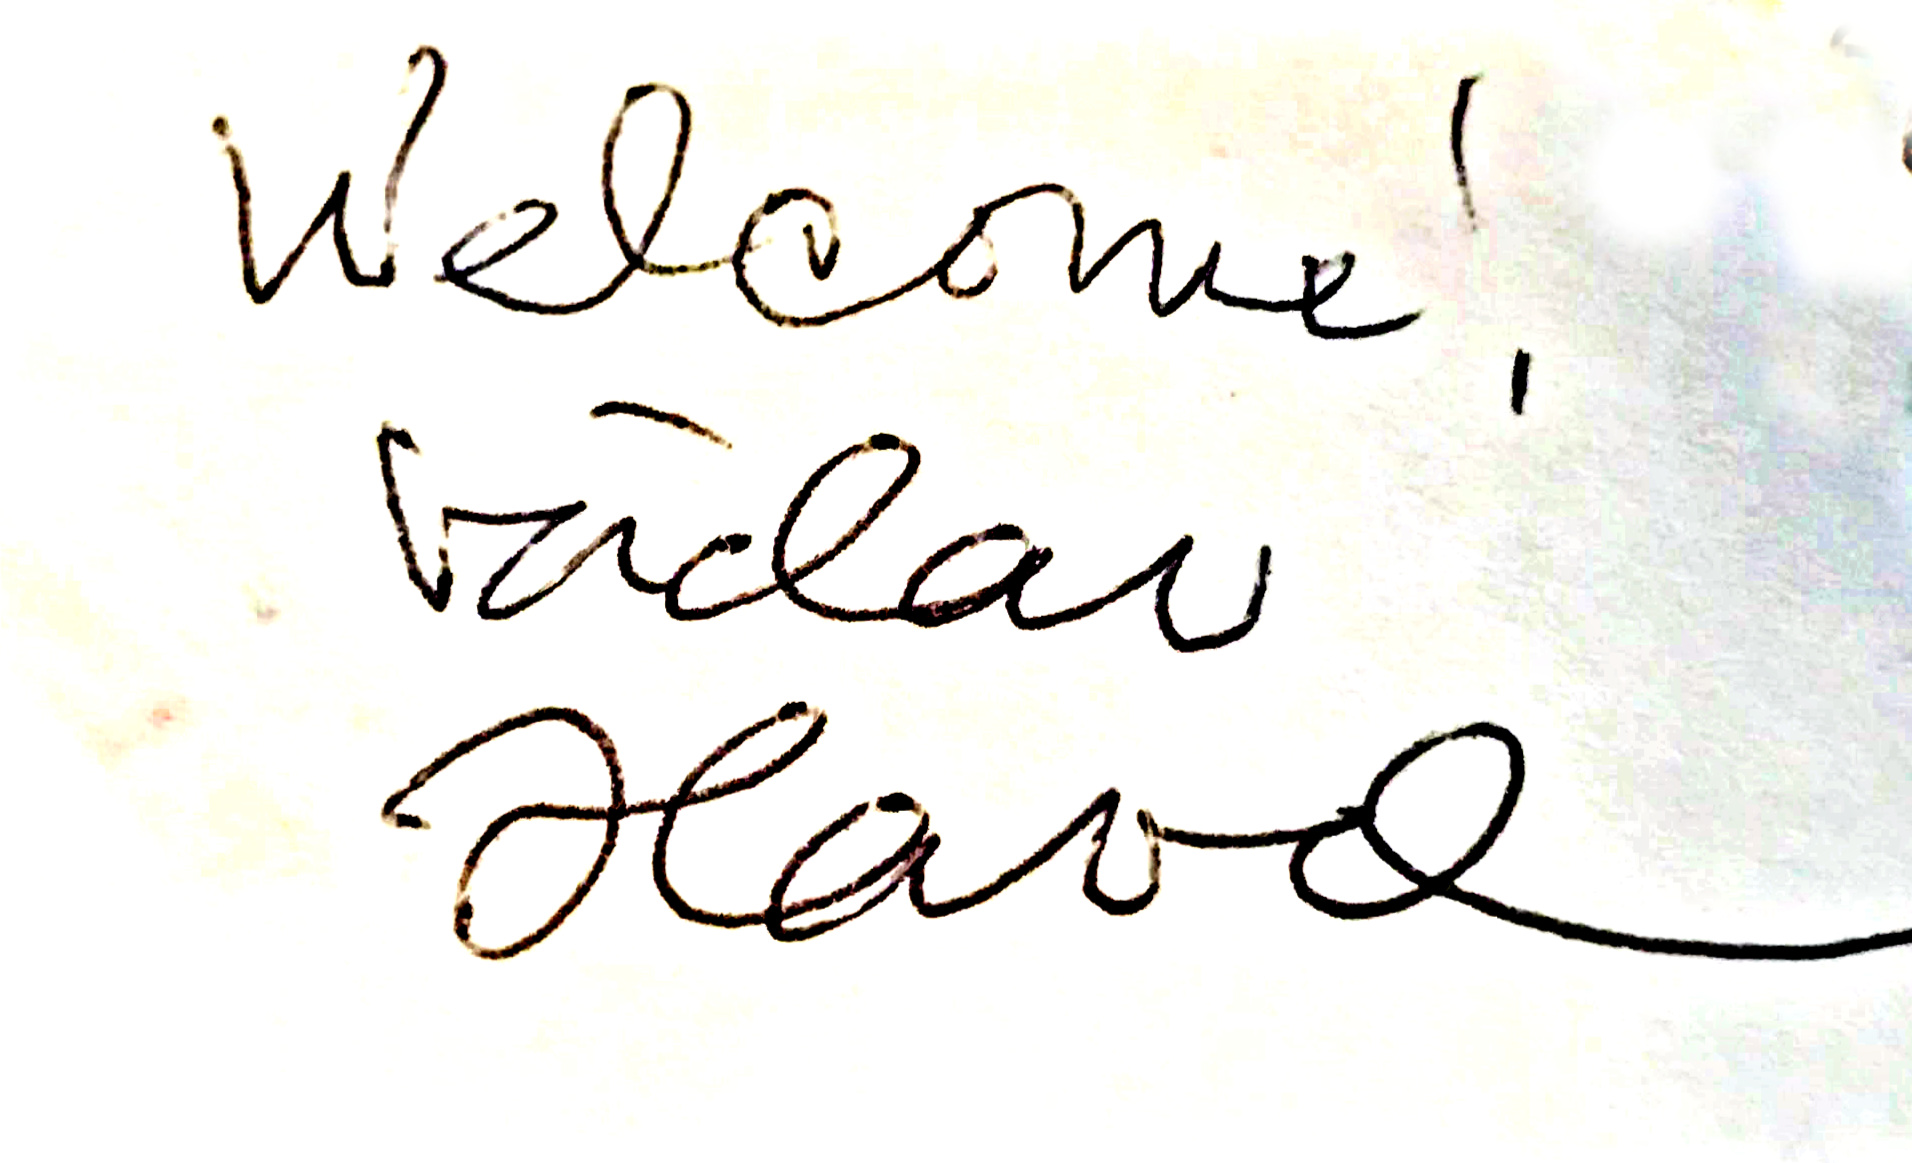 Welcome!
Václav
Havel